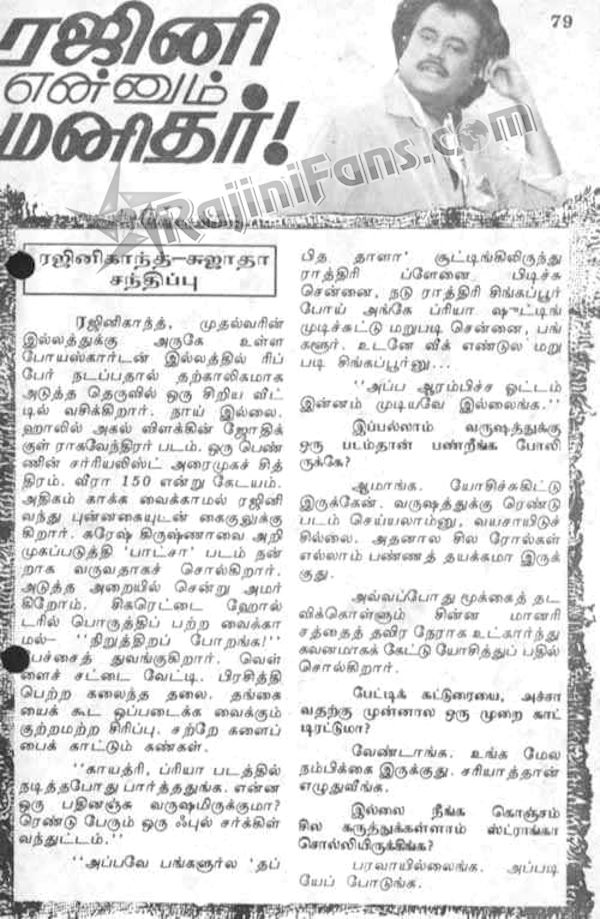 79
ரஜினி
என்னும்
மனிதர்!
RajiniFans.com
ரஜினிகாந்த்–சுஜாதா
சந்திப்பு
ரஜினிகாந்த், முதல்வரின்
இல்லத்துக்கு அருகே உள்ள
போயஸ்கார்டன் இல்லத்தில் ரிப்
பேர் நடப்பதால் தற்காலிகமாக
அடுத்த தெருவில் ஒரு சிறிய வீட்
டில் வசிக்கிறார். நாய் இல்லை.
ஹாலில் அகல் விளக்கின் ஜோதிக்
குள் ராகவேந்திரர் படம். ஒரு பெண்
ணின் சர்ரியலிஸ்ட் அரைமுகச் சித்
திரம். வீரா 150 என்று கேடயம்.
அதிகம் காக்க வைக்காமல் ரஜினி
வந்து புன்னகையுடன் கைகுலுக்கு
கிறார். சுரேஷ் கிருஷ்ணாவை அறி
முகப்படுத்தி 'பாட்சா' படம் நன்
றாக வருவதாகச் சொல்கிறார்.
அடுத்த அறையில் சென்று அமர்
கிறோம். சிகரெட்டை ஹோல்
டரில் பொருத்திப் பற்ற வைக்கா
மல்— "நிறுத்திறப் போறங்க!"
பேச்சைத் துவங்குகிறார். வெள்
ளைச் சட்டை வேட்டி. பிரசித்தி
பெற்ற கலைந்த தலை. தங்கை
யைக் கூட ஒப்படைக்க வைக்கும்
குற்றமற்ற சிரிப்பு. சற்றே களைப்
பைக் காட்டும் கண்கள்.
"காயத்ரி, ப்ரியா படத்தில்
நடித்தபோது பார்த்ததுங்க. என்ன
ஒரு பதினஞ்சு வருஷமிருக்குமா?
ரெண்டு பேரும் ஒரு ஃபுல் சர்க்கிள்
வந்துட்டம்."
"அப்பவே பங்களூர்ல 'தப்
பித தாளா' சூட்டிங்கிலிருந்து
ராத்திரி ப்ளேனை பிடிச்சு
சென்னை, நடு ராத்திரி சிங்கப்பூர்
போய் அங்கே ப்ரியா ஷுட்டிங்
முடிச்சுட்டு மறுபடி சென்னை, பங்
களூர். உடனே வீக் எண்டுல மறு
படி சிங்கப்பூர்னு...
"அப்ப ஆரம்பிச்ச ஓட்டம்
இன்னம் முடியவே இல்லைங்க."
இப்பல்லாம் வருஷத்துக்கு
ஒரு படம்தான் பண்றீங்க போலி
ருக்கே?
ஆமாங்க. யோசிச்சுகிட்டு
இருக்கேன். வருஷத்துக்கு ரெண்டு
படம் செய்யலாம்னு, வயசாயிடுச்
சில்லை. அதனால சில ரோல்கள்
எல்லாம் பண்ணத் தயக்கமா இருக்
குது.
அவ்வப்போது மூக்கைத் தட
விக்கொள்ளும் சின்ன மானரி
சத்தைத் தவிர நேராக உட்கார்ந்து
கவனமாகக் கேட்டு யோசித்துப் பதில்
சொல்கிறார்.
பேட்டிக் கட்டுரையை, அச்சா
வதற்கு முன்னால ஒரு முறை காட்
டிரட்டுமா?
வேண்டாங்க. உங்க மேல
நம்பிக்கை இருக்குது. சரியாத்தான்
எழுதுவீங்க.
இல்லை நீங்க கொஞ்சம்
சில கருத்துக்கள்ளாம் ஸ்ட்ராங்கா
சொல்லியிருக்கிங்க?
பரவாயில்லைங்க. அப்படி
யேப் போடுங்க.